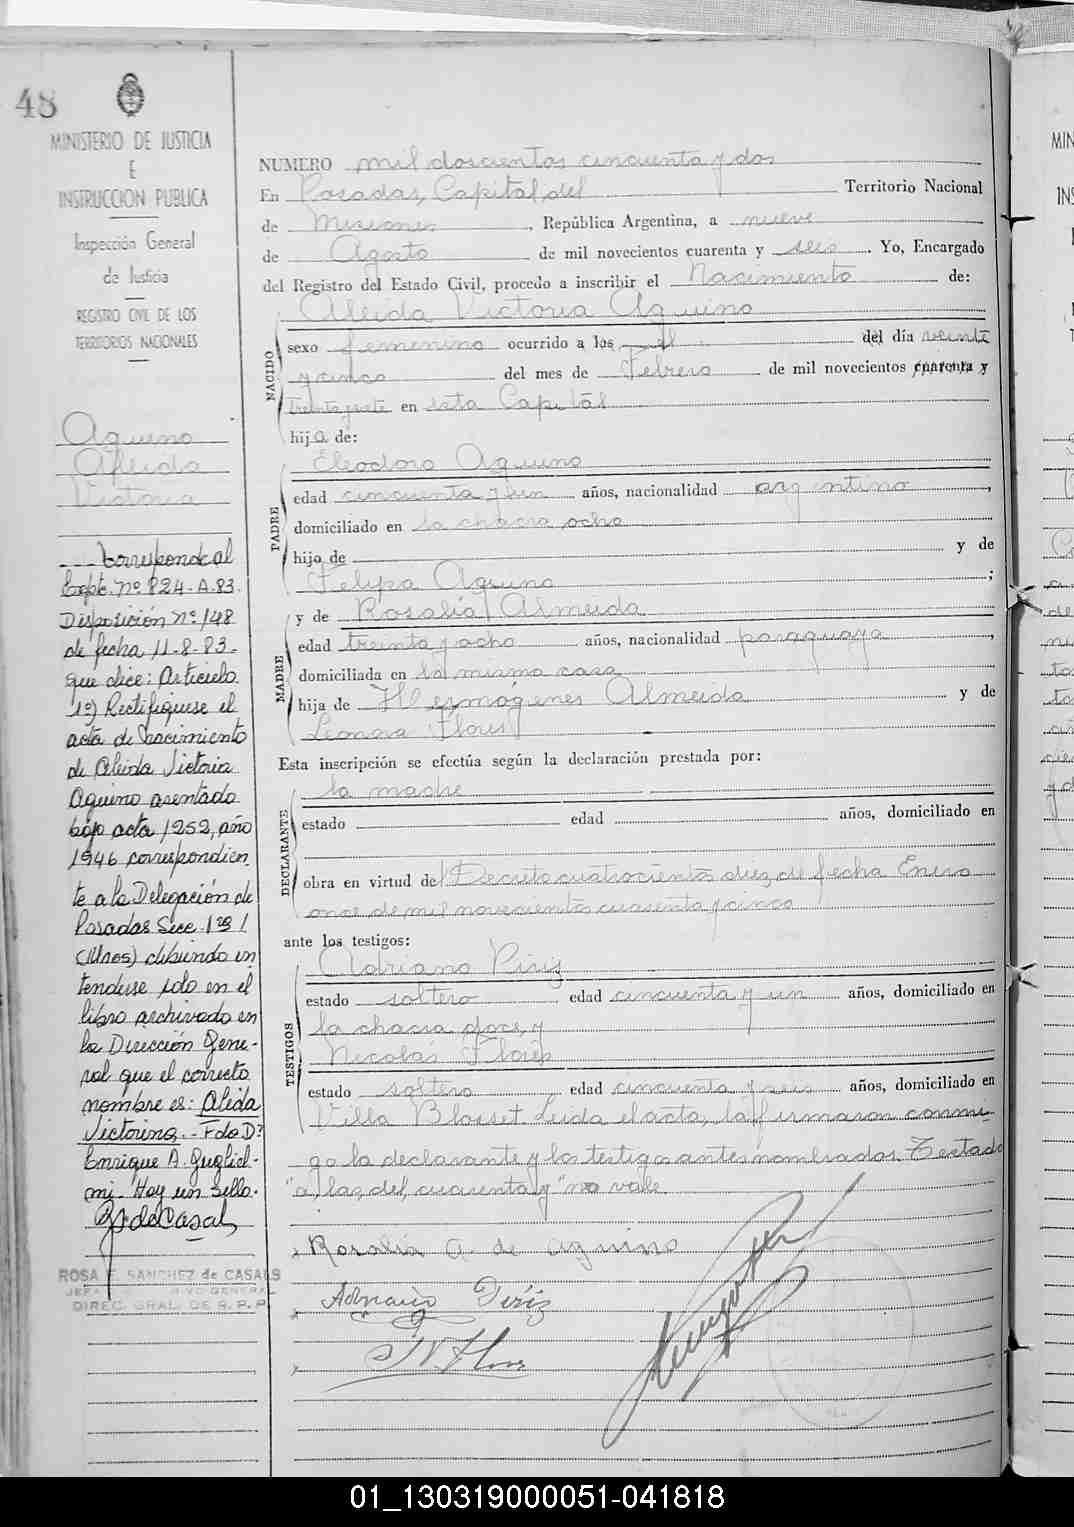 48
MINISTERIO DE JUSTICIA
E
INSTRUCCION PUBLICA
Inspección General
de Justicia
REGISTRO CIVIL DE LOS
TERRITORIOS NACIONALES
Aquino
Aleida
Victoria
Corresponde al
Expte. nº 824-A-83.
Disposición nº 148
de fecha 11-8-83-
que dice: Artículo
1º) Rectifíquese el
acta de nacimiento
de Aleida Victoria
Aquino asentado
bajo acta 1252, año
1946 correspondien
te a la Delegación de
Posadas Secc. 1ª
debiendo en
tenderse solo en el
libro archivado en
la Dirección Gene-
ral que el correcto
nombre es: Aleida
Victorina.- Fdo D?
Enrique A. Gugliel-
mi- Hay un sello.
ROSA F. SANCHEZ de CASALS
JEFA ARCHIVO GENERAL
DIREC. GRAL. DE R. P. P.
NUMERO mil doscientos cincuenta y dos
En Posadas, Capital del Territorio Nacional
de Misiones, República Argentina, a nueve
de Agosto de mil novecientos cuarenta y seis. Yo, Encargado
del Registro del Estado Civil, procedo a inscribir el Nacimiento de:
Aleida Victoria Aquino
NACIDO
sexo femenino ocurrido a los del día veinte
y cinco del mes de Febrero de mil novecientos cuarenta y
treinta y siete en esta Capital
hija de:
PADRE
Eleodoro Aquino
edad cincuenta y un años, nacionalidad argentino,
domiciliado en la chacra ocho
hijo de y de
Felipa Aquino;
MADRE
y de Rosalía Almeida
edad treinta y ocho años, nacionalidad paraguaya,
domiciliada en la misma casa
hija de Hermógenes Almeida y de
Leonora Flores
Esta inscripción se efectúa según la declaración prestada por:
DECLARANTE
la madre
estado edad años, domiciliado en
obra en virtud del Decreto cuatrocientos diez de fecha Enero
once de mil novecientos cuarenta y cinco
ante los testigos:
TESTIGOS
Adriano Piriz
estado soltero edad cincuenta y un años, domiciliado en
la chacra doce, y
Nicolás Flores
estado soltero edad cincuenta y seis años, domiciliado en
Villa Blosset. Leida el acta, la firmaron conmi
go la declarante y los testigos antes nombrados. Testado
"a, las, del, cuarenta y" no vale
Rosalia A. de Aquino
Adriano Piriz
N Flores
01_130319000051-041818